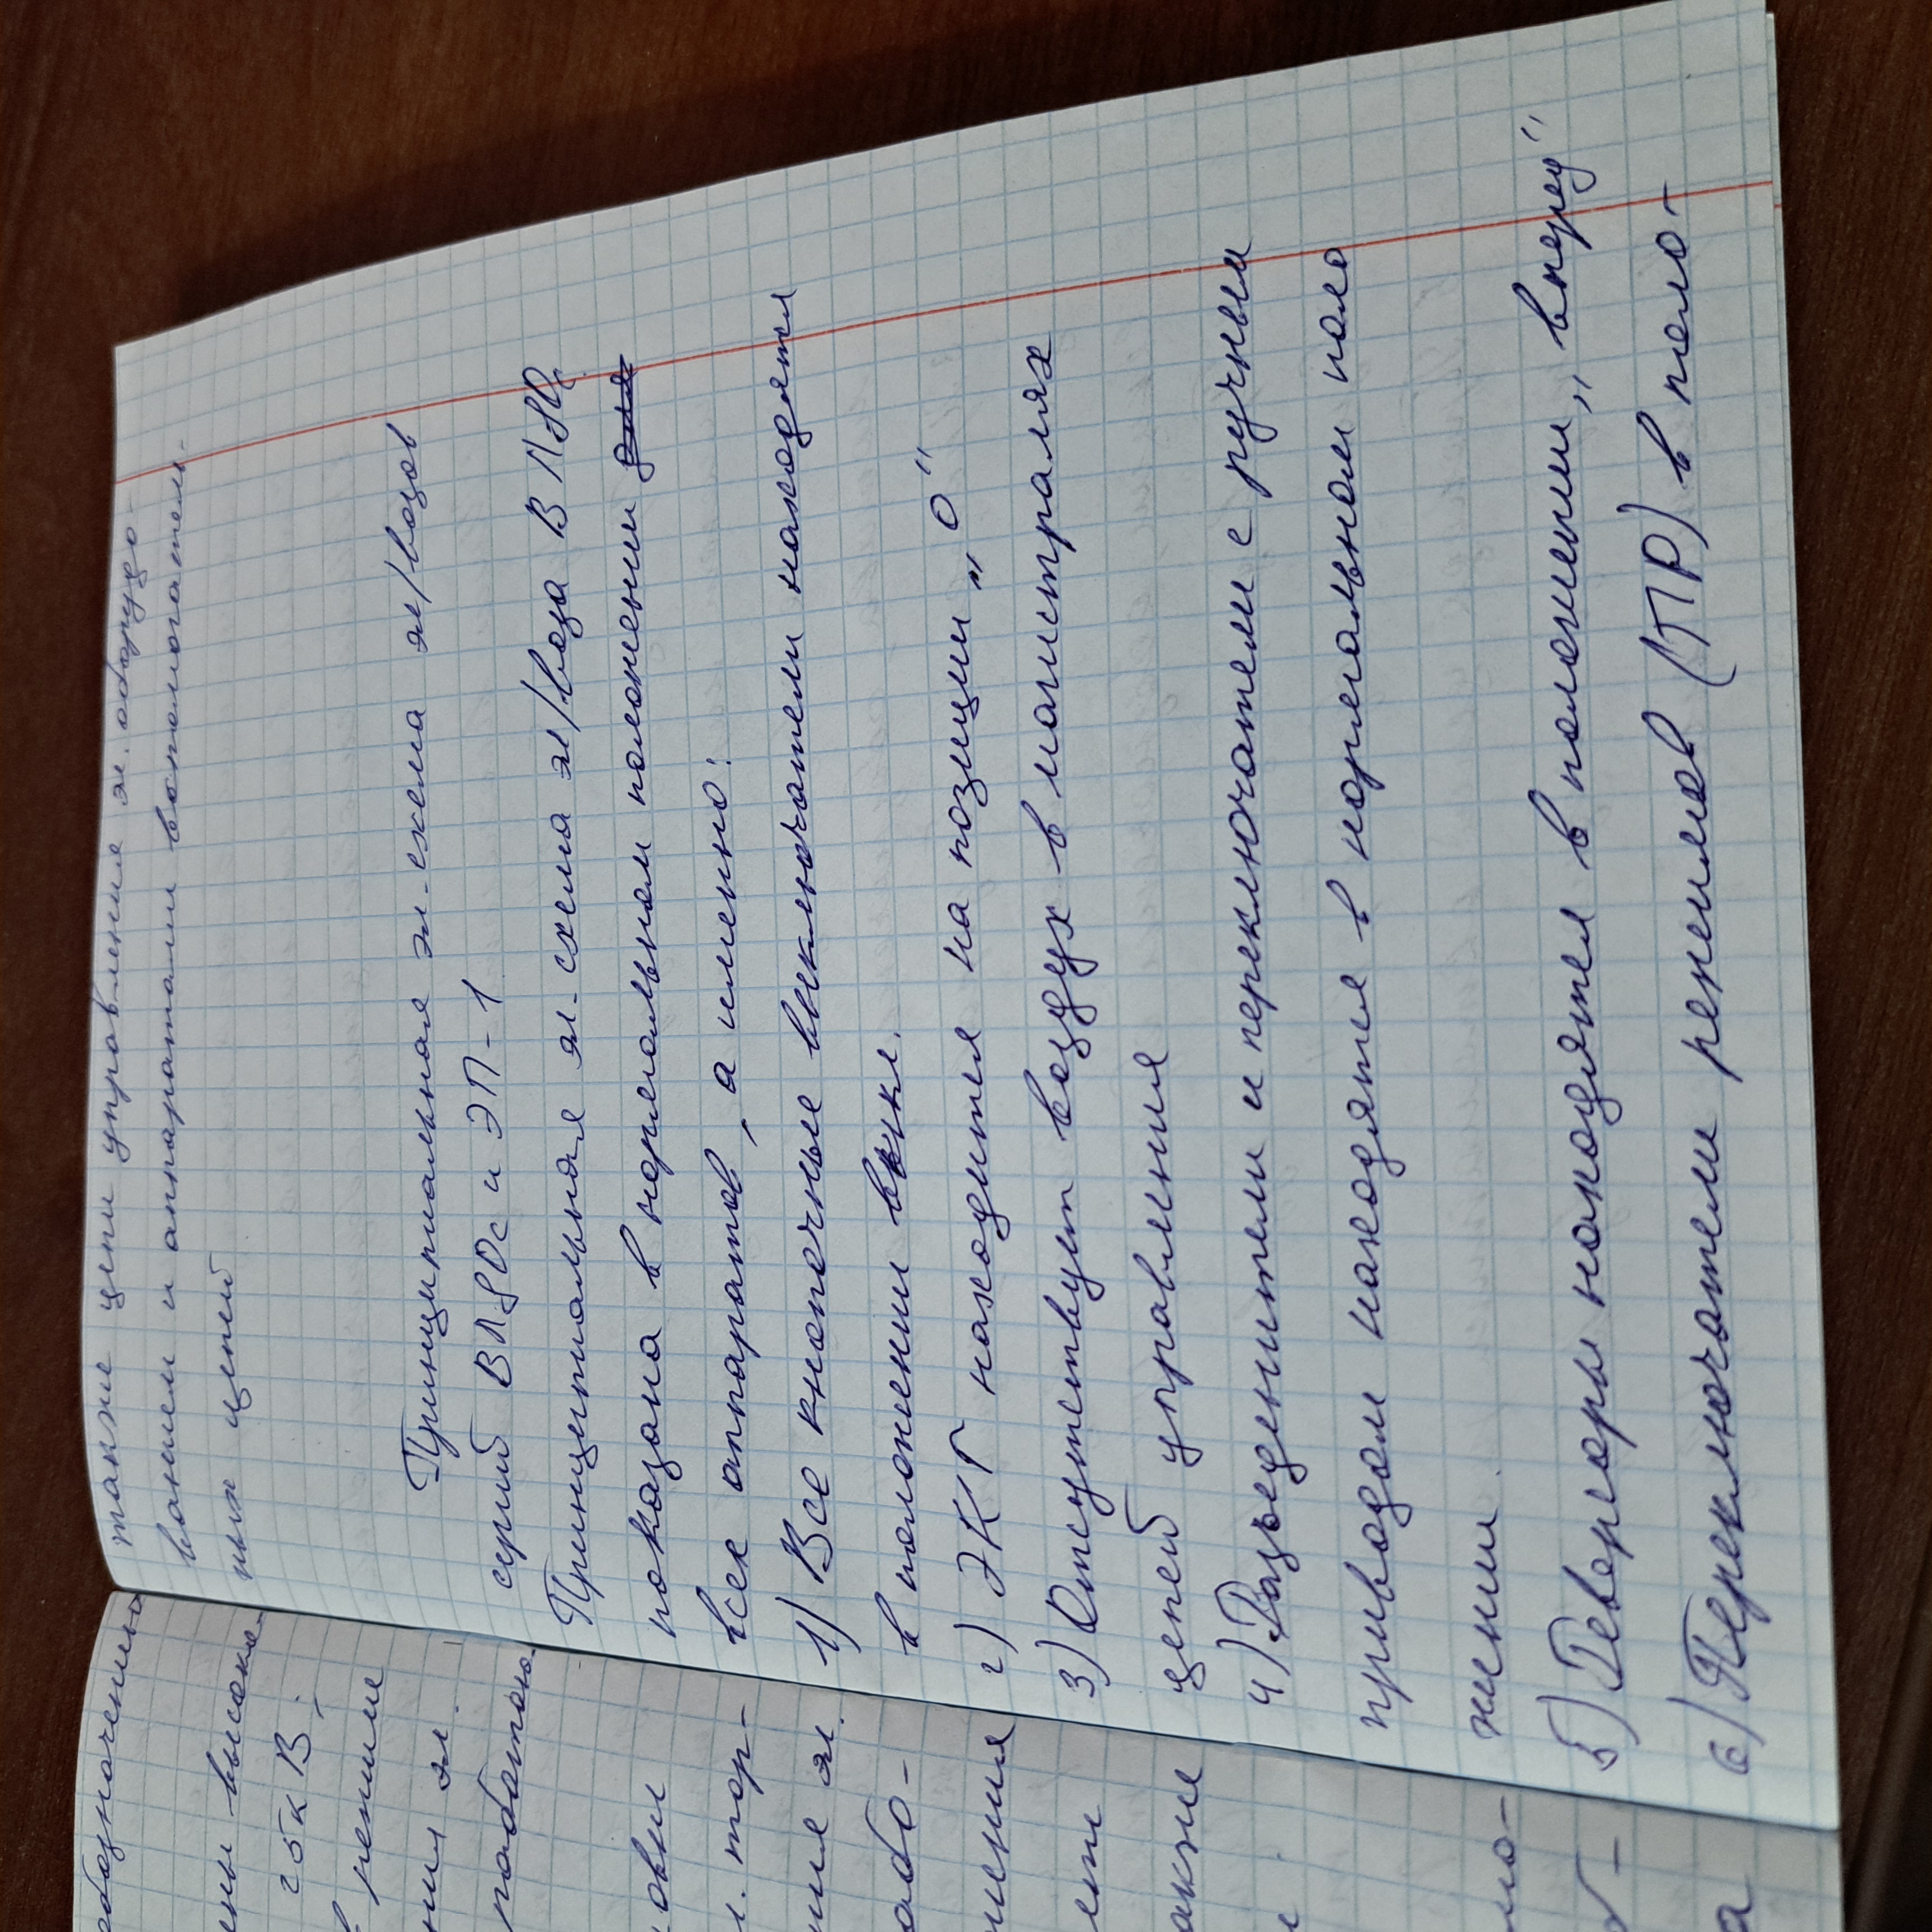 также цепи управления эл. оборудо-
ванием и аппаратами вспомогатель-
ных цепей
Принципиальная эл. схема эл/возов
серий ВЛ80с и ЭП-1
Принципиальная эл. схема эл/воза ВЛ80с
показана в нормальном положении для
всех аппаратов, а именно:
1) Все кнопочные выключатели находятся
в положении выкл.
2) ЭКГ находится на позиции „0"
3) Отсутствует воздух в магистралях
цепей управления
4) Разъединители и переключатели с ручным
приводом находятся в нормальном поло
жении.
5) Реверсоры находятся в положении „вперед"
6) Переключатели режимов (ПР) в поло-
обозначены
ены высоко-
режиме
ния эл.
работаю-
овки
эл.
ения
акже